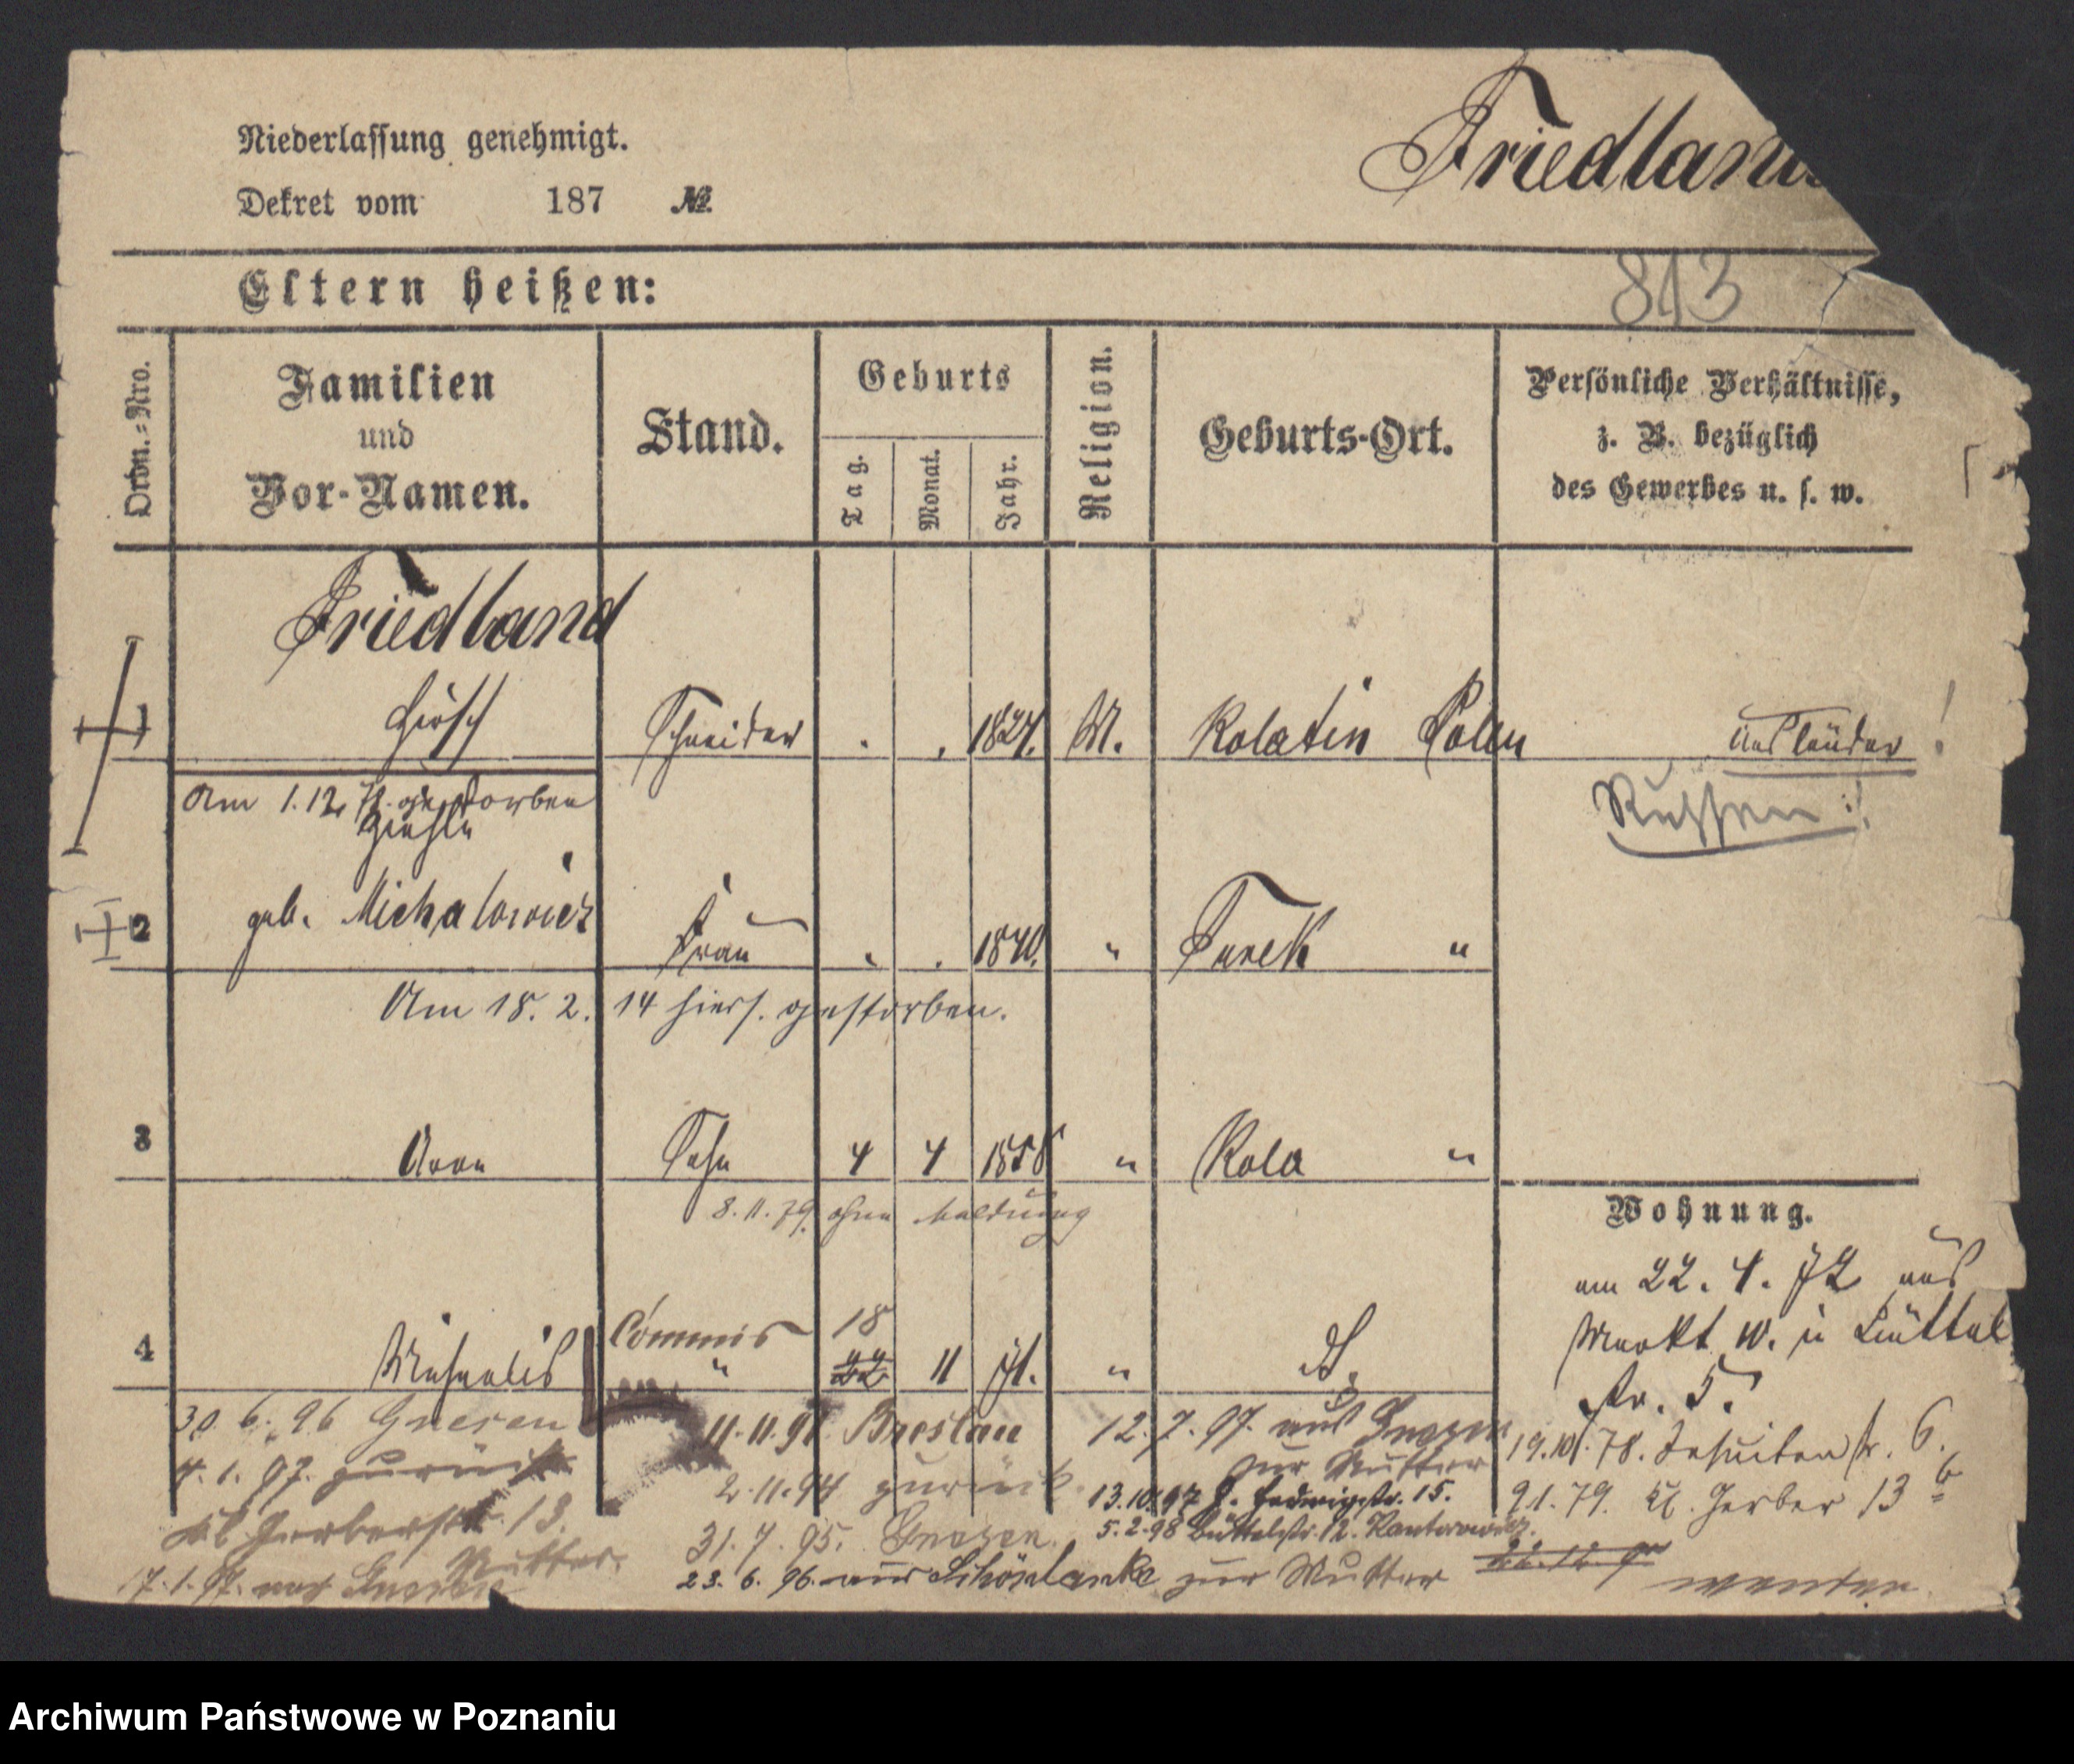 Niederlassung genehmigt.
Dekret vom 187 №
Friedland
813
Eltern heißen:
Ordn.-Nro.
Familien
und
Vor-Namen.
Stand.
Geburts
Tag.
Monat.
Jahr.
Religion.
Geburts-Ort.
Persönliche Verhältnisse,
z. B. bezüglich
des Gewerbes u. s. w.
Friedland
Hirsch Schneider . . 1824. M. Kolatin Polen Ausländer !
Am 1.12. gestorben
Russen !
2 geb. Michalowicz Frau . . 1840. " Turek "
Am 18. 2. 14 hiers. gestorben.
3 Aron Sohn 4 4 1858 " Kola "
8.11.79. ohne Meldung
Wohnung.
am 22. 4. 72 aus
Markt 10. in Büttel
str. 5.
Commis 18
4 Michaelis " 22 11 71. "
30. 6. 96 Gnesen
11.11.91 Breslau
12.7.97. aus Gnesen
zur Mutter
19.10.78. Jesuitenstr. 6.
4. 1. 97. zurück
2.11.94 zurück
13.10.97 str. 15.
9.1.79. Kl. Gerber 13 b
Kl. Gerberstr. 13.
Mutter.
31. 7. 95. Gnesen.
5.2.98 Büttelstr. 12. Kantorowicz.
17.1.97. nach Gnesen
23. 6. 96. aus Schönlanke zur Mutter
wenden
Archiwum Państwowe w Poznaniu